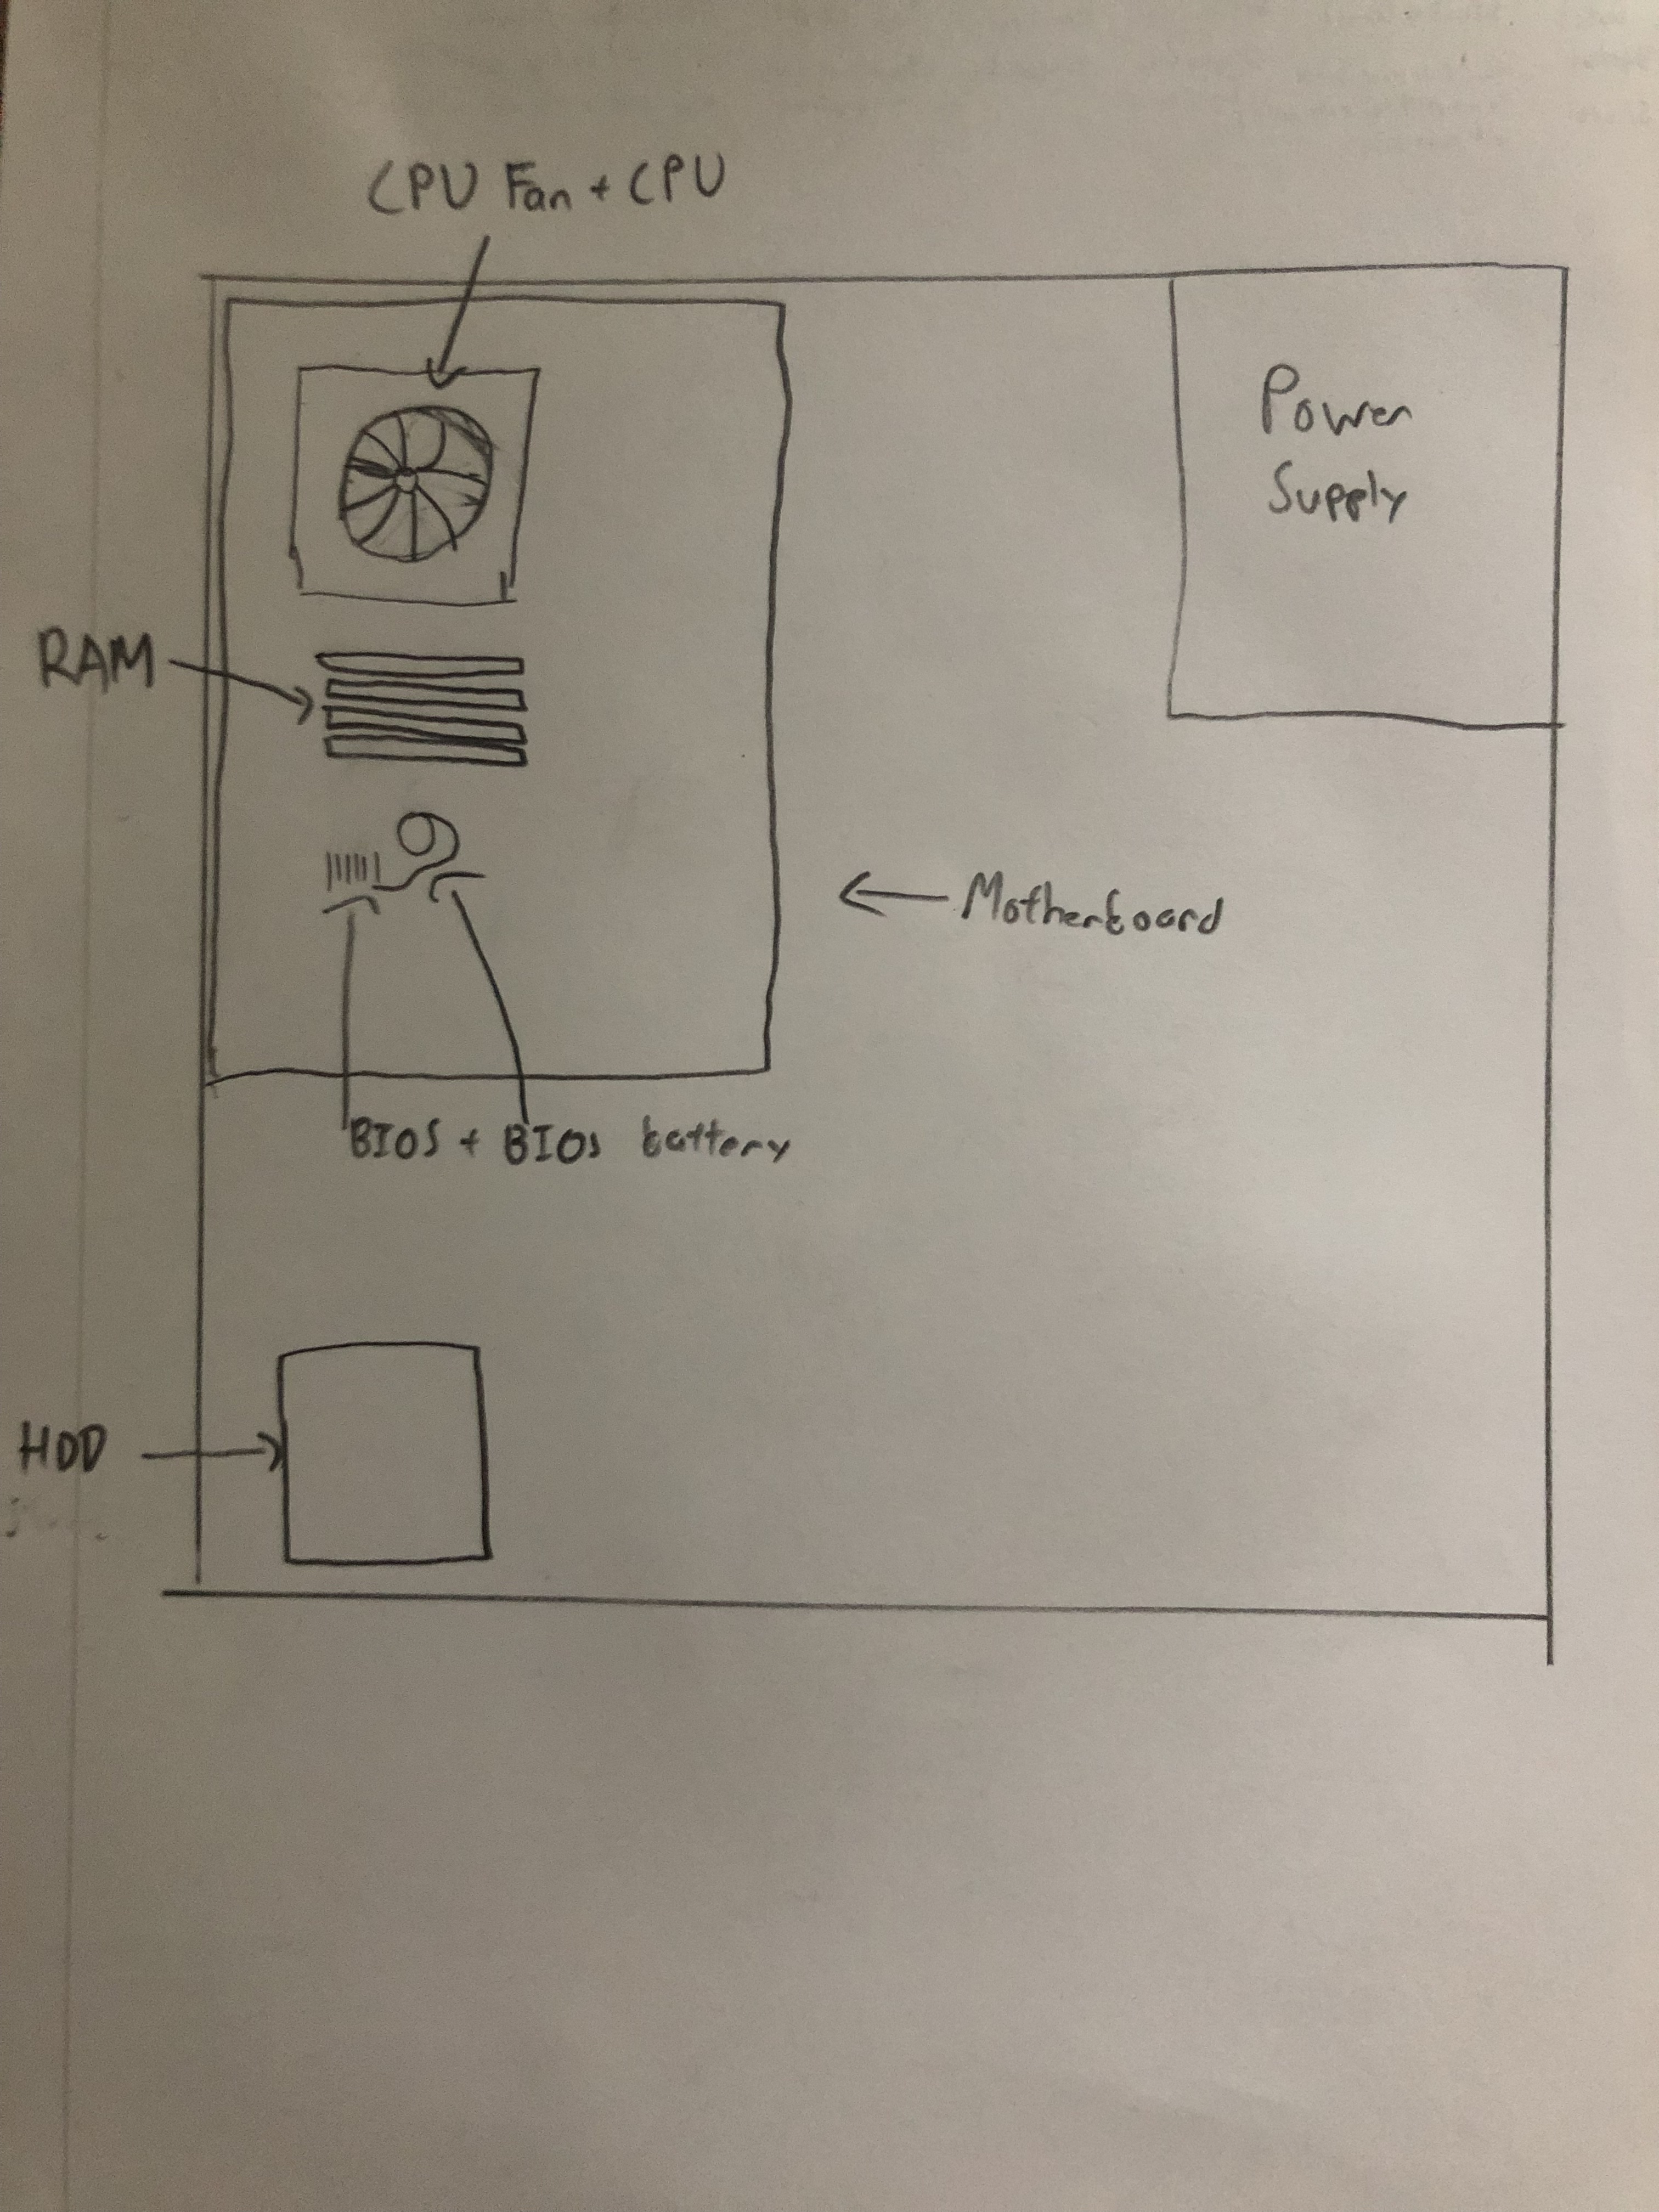 CPU Fan + CPU
Power
Supply
RAM
Motherboard
BIOS + BIOS battery
HDD